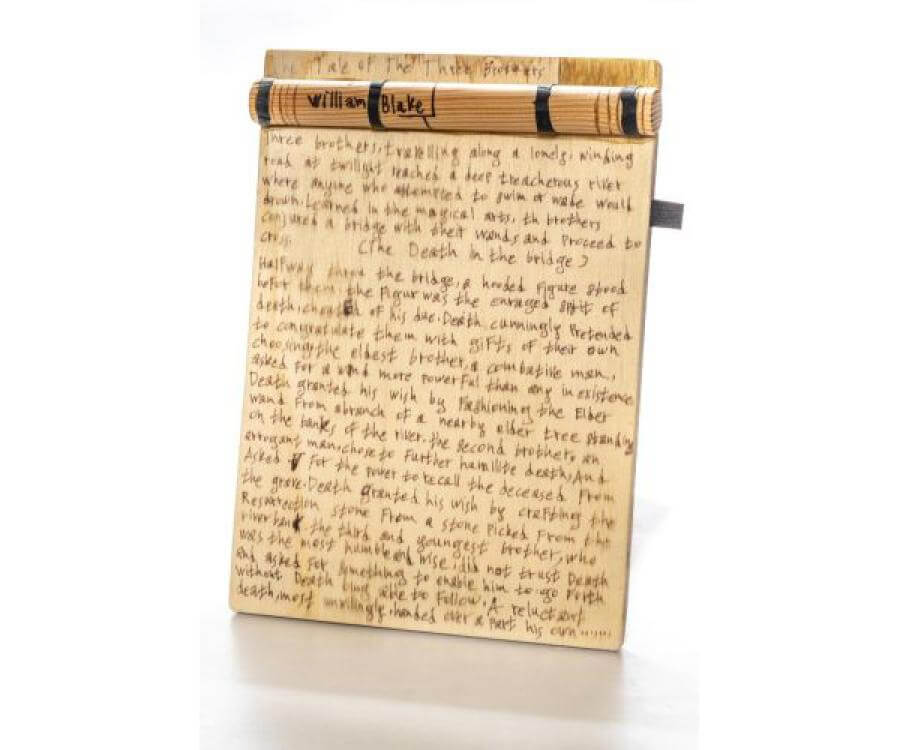 The Tale of The Three Brothers
William Blake
Three brothers, travelling along a lonely, winding
road at twilight reached a deep treacherous river
where anyone who attempted to swim or wade would
drown. Learned in the magical arts, th brothers
conjured a bridge with their wands and proceed to
cross.
(The Death in the bridge)
Halfway the bridge, a hooded Figure stood
befor them. the Figur was the enraged spirit of
death, cheated of his due. Death cunningly Pretended
to congratulate them with gifts of their own
choosing. the eldest brother, a combative man,
asked For a wand more powerful than any in existence
Death granted his wish by Fashioning the Elder
wand From abranch of a nearby elder tree standing
on the banks of the river. the second brother, an
arrogant man, chose to Further hamilite death, And
Asked For the Power to recall the deceased From
the grave. Death granted his wish by crafting the
Resurrection stone From a stone Picked From the
riverbank the third and youngest brother, who
was the most humble and wise, did not trust Death
and asked For something to enable him to go Forth
without Death able to Follow. A reluctant
death, most unwillingly, handed over a Part his own ......